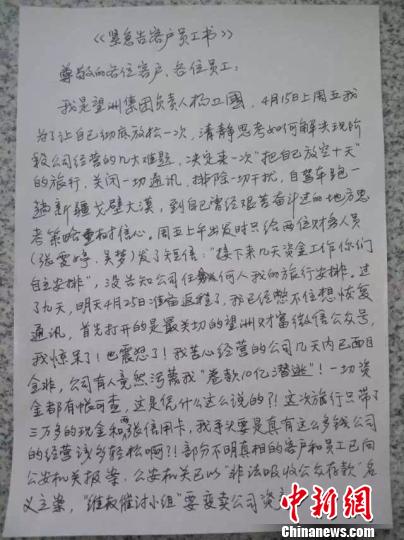 《紧急告客户员工书》
尊敬的各位客户、各位员工：
我是望洲集团负责人杨卫国，4月15日上周五我
为了让自己彻底放松一次，清静思考如何解决现阶
段公司经营的几大难题，决定来一次"把自己放空十天"
的旅行，关闭一切通讯，排除一切干扰，自驾车跑一
趟新疆戈壁大漠，到自己曾经艰苦奋斗过的地方思
考策略重树信心。周五上午出发时只给两位财务人员
（张雪婷、吴梦）发了短信："接下来几天资金工作你们
自主安排"，没告知公司任何人我的旅行安排。过
了九天，明天4月25日准备返程了，我已经憋不住想恢复
通讯，首先打开的是最关切的望洲财富微信公众号，
我惊呆了！也震怒了！我苦心经营的公司几天内已面目
全非，公司有人竟然污蔑我"卷款10亿潜逃"！一切资
金都有帐可查，这是凭什么这么说的？！这次旅行只带了
三万多的现金和两张信用卡，我手头要是真有这么多钱公司
的经营该多轻松啊？！部份不明真相的客户和员工已向
公安机关报案，公安机关已以"非法吸收公众存款"名
义立案，"维权催讨小组"要变卖公司资产
中新网
Chinanews.com